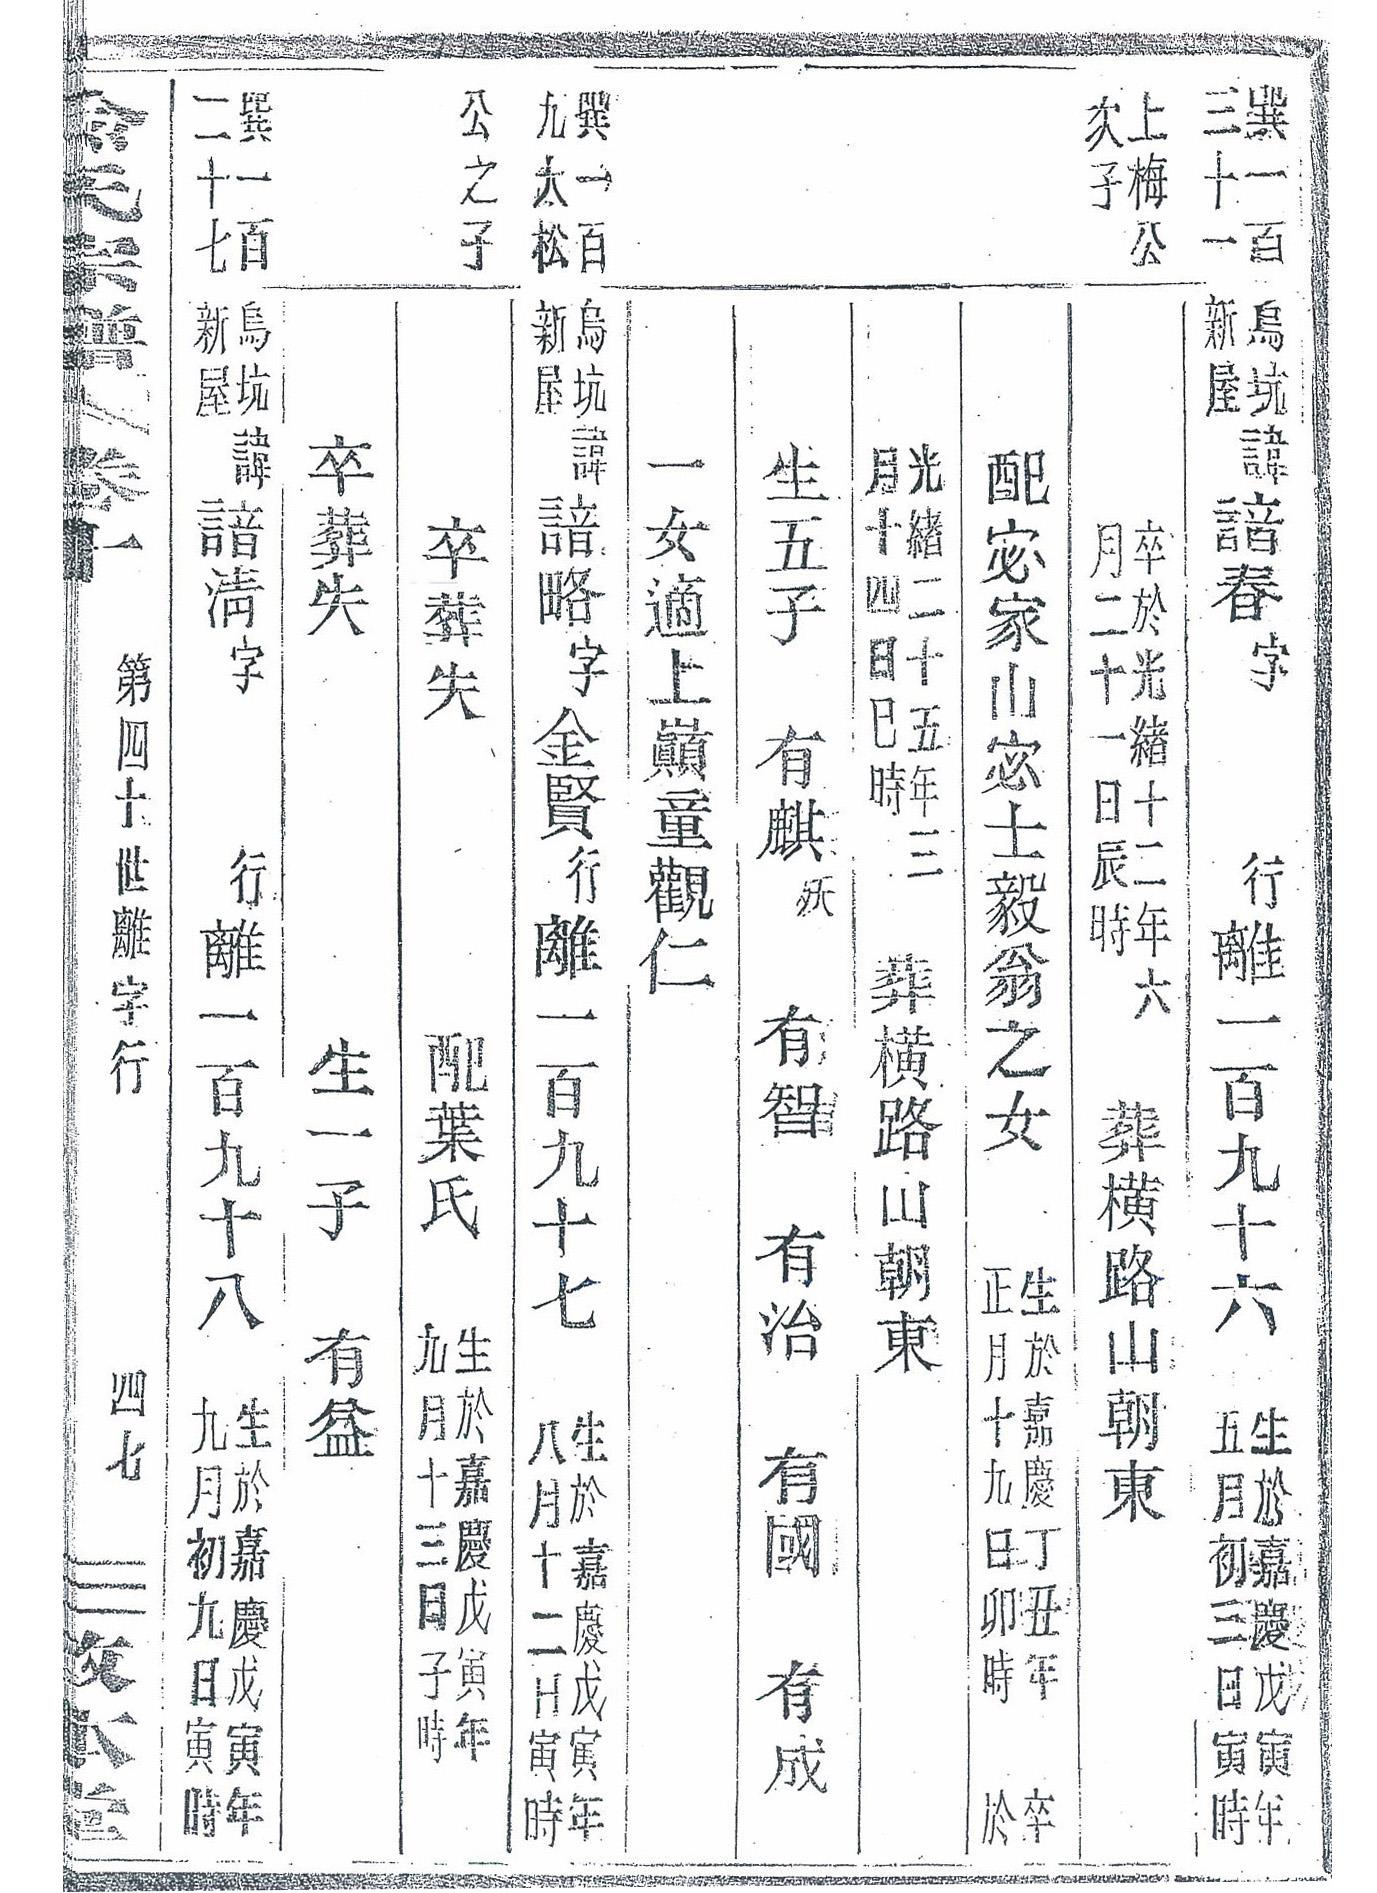 巽一百三十一
烏坑新屋諱諳春字 行離一百九十六 生於嘉慶戊寅年五月初三日寅時
上梅公次子
卒於光緒十二年六月二十一日辰時 葬橫路山朝東
配宓家山宓士毅翁之女 生於嘉慶丁丑年正月十九日卯時 卒於
光緒二十五年三月十四日巳時 葬橫路山朝東
生五子 有麒殀 有智 有治 有國 有成
一女適上巔童觀仁
巽一百九太松
烏坑新屋諱諳略字金賢行離一百九十七 生於嘉慶戊寅年八月十二日寅時
公之子
卒葬失 配葉氏 生於嘉慶戊寅年九月十三日子時
卒葬失 生一子 有益
巽一百二十七
烏坑新屋諱諳淸字 行離一百九十八 生於嘉慶戊寅年九月初九日寅時
氏宗譜 卷一 第四十世離字行 四七